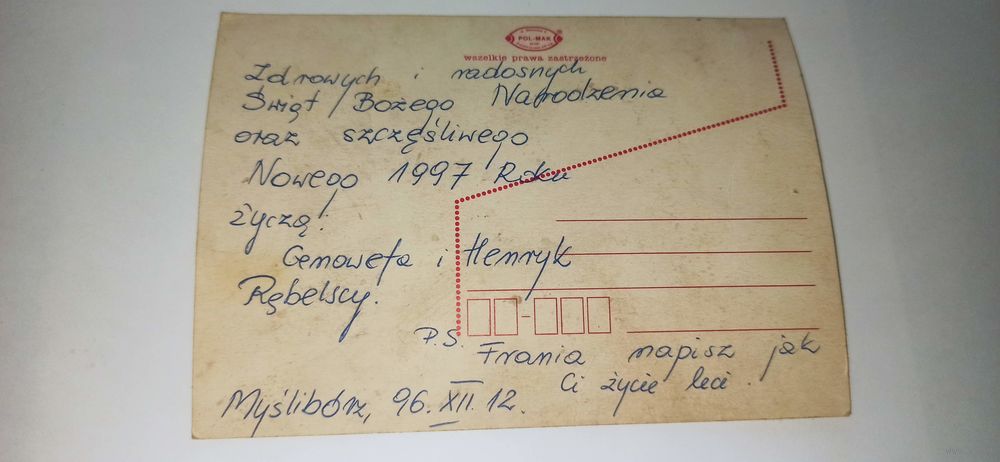 POL-MAK
wszelkie prawa zastrzeżone
Zdrowych i radosnych
Świąt Bożego Narodzenia
oraz szczęśliwego
Nowego 1997 Roku
życzą:
Genowefa i Henryk
Rębelscy.
P.S. Frania napisz jak
Ci życie leci.
Myślibórz, 96.XII.12.